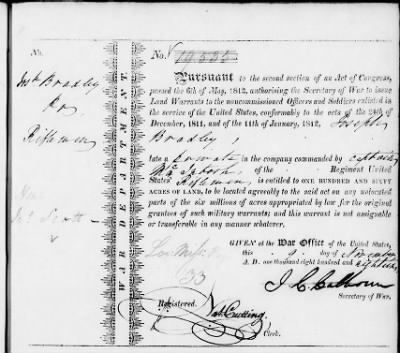 No.
No. 19,535
Josh Bradley
Riflemen
WAR DEPARTMENT.
Pursuant to the second section of an Act of Congress,
passed the 6th of May, 1812, authorising the Secretary of War to issue
Land Warrants to the noncommissioned Officers and Soldiers enlisted in
the service of the United States, conformably to the acts of the 24th of
December, 1811, and of the 11th of January, 1812, Joseph
Bradley,
late a Private in the company commanded by Captain
of the Regiment United
States' Riflemen, is entitled to ONE HUNDRED AND SIXTY
ACRES OF LAND, to be located agreeably to the said act on any unlocated
parts of the six millions of acres appropriated by law for the original
grantees of such military warrants; and this warrant is not assignable
or transferable in any manner whatever.
Scott
GIVEN at the War Office of the United States,
this 9 day of November
A. D. one thousand eight hundred and eighteen
J C Calhoun
Secretary of War.
Registered.
Nat. Cutting
Clerk.